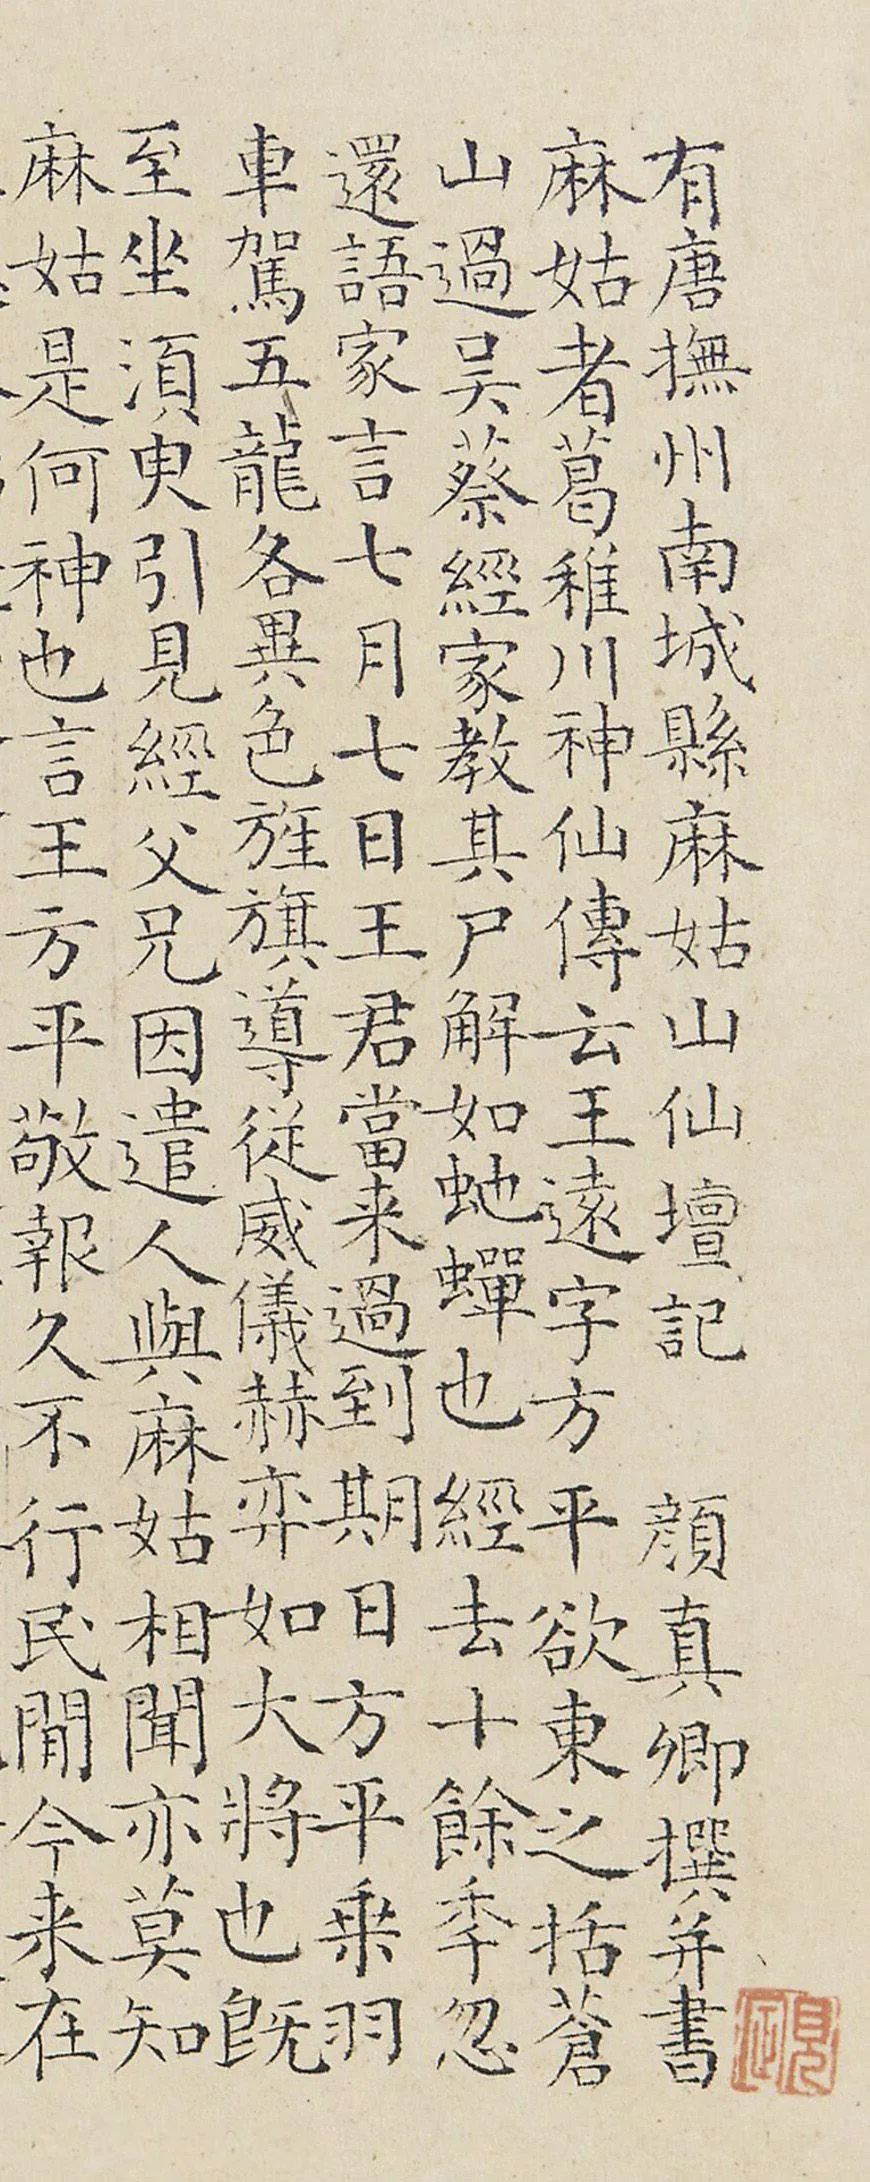 有唐撫州南城縣麻姑山仙壇記 顔真卿撰并書
麻姑者葛稚川神仙傳云王遠字方平欲東之括蒼
山過吴蔡經家教其尸解如虵蟬也經去十餘季忽
還語家言七月七日王君當来過到期日方平乗羽
車駕五龍各異色旌旗導從威儀赫弈如大將也既
至坐須臾引見經父兄因遣人與麻姑相聞亦莫知
麻姑是何神也言王方平敬報久不行民間今来在